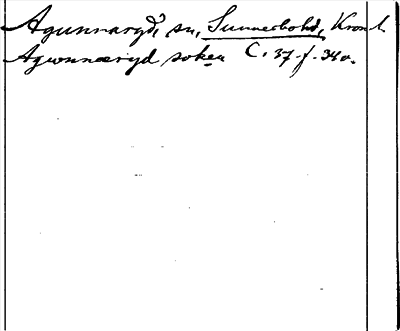 Agunnaryd, sn, Sunnerbohd, Kron. l.
Agwnnæriyd soken C. 37 f. 34 a.